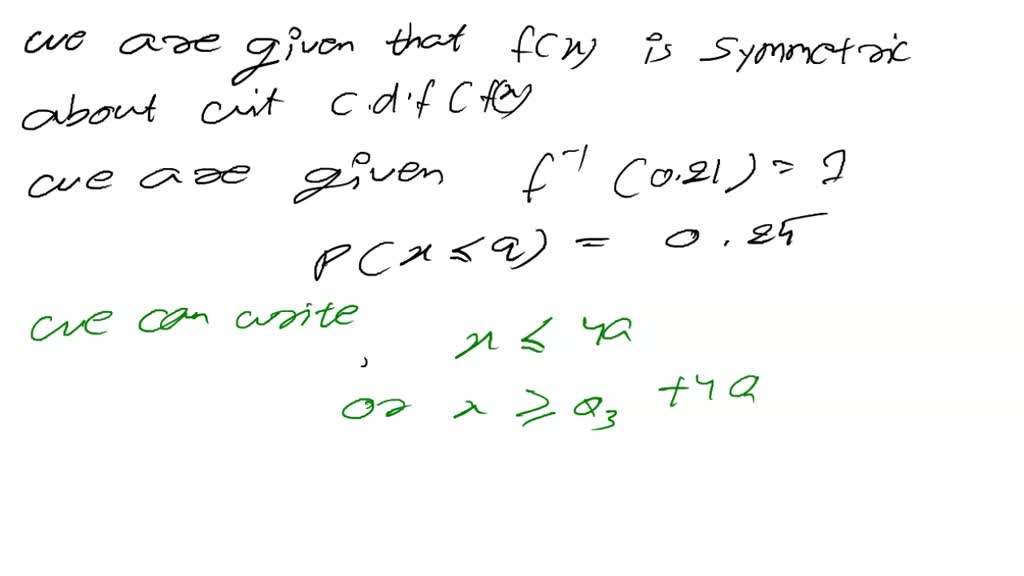 we are given that f(x) is symmetric
about with c.d.f C f(x)
we are given f⁻¹ (0.21) = 1
P(x ≤ q) = 0.25
we can write , x ≤ 4a
or x ≥ Q₃ + 4Q